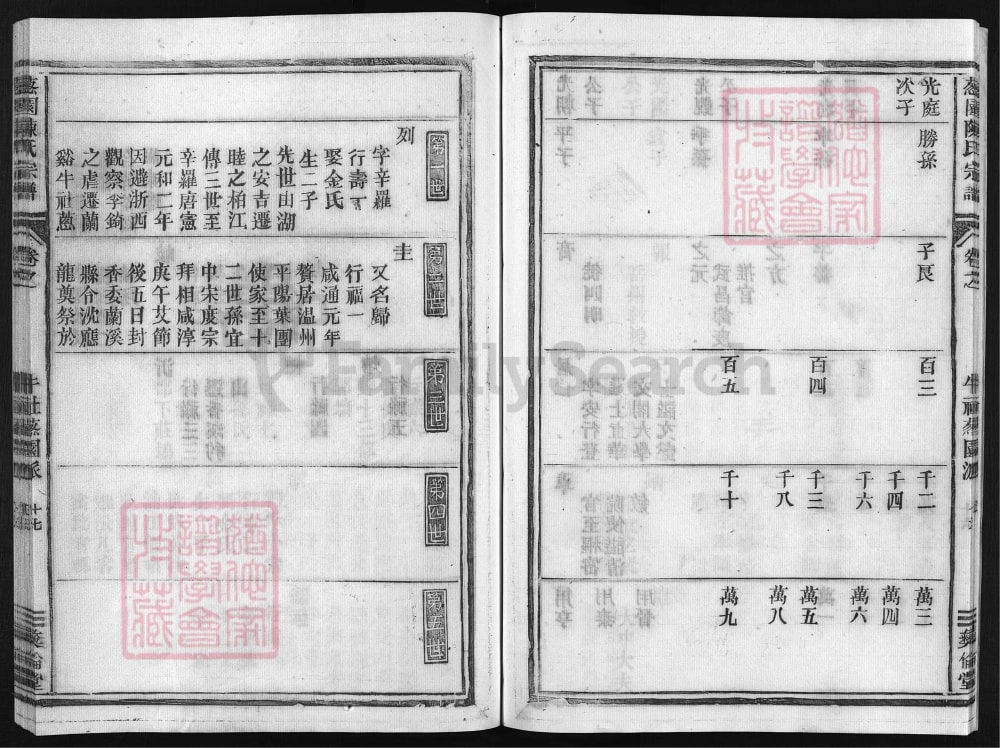 葱園陳氏宗譜
卷之
牛社葱園派
彝倫堂
光庭
次子
勝孫
子良
百三
百四
百五
千二
千四
千六
千三
千八
千十
萬三
萬四
萬六
萬五
萬八
萬九
第一世
列
字辛羅
行壽一
娶金氏
生二子
先世由湖
之安吉遷
睦之柏江
傳三世至
辛羅唐憲
元和二年
因避浙西
觀察李錡
之虐遷蘭
谿牛社葱
第二世
圭
又名歸
行福一
咸通元年
贅居温州
平陽葉團
使家至十
二世孫宜
中宋度宗
拜相咸淳
庚午艾節
後五日封
香委蘭溪
縣令沈應
龍奠祭於
第三世
第四世
第五世
葱園陳氏宗譜
卷之
牛社葱園派
十七
彝倫堂
FamilySearch